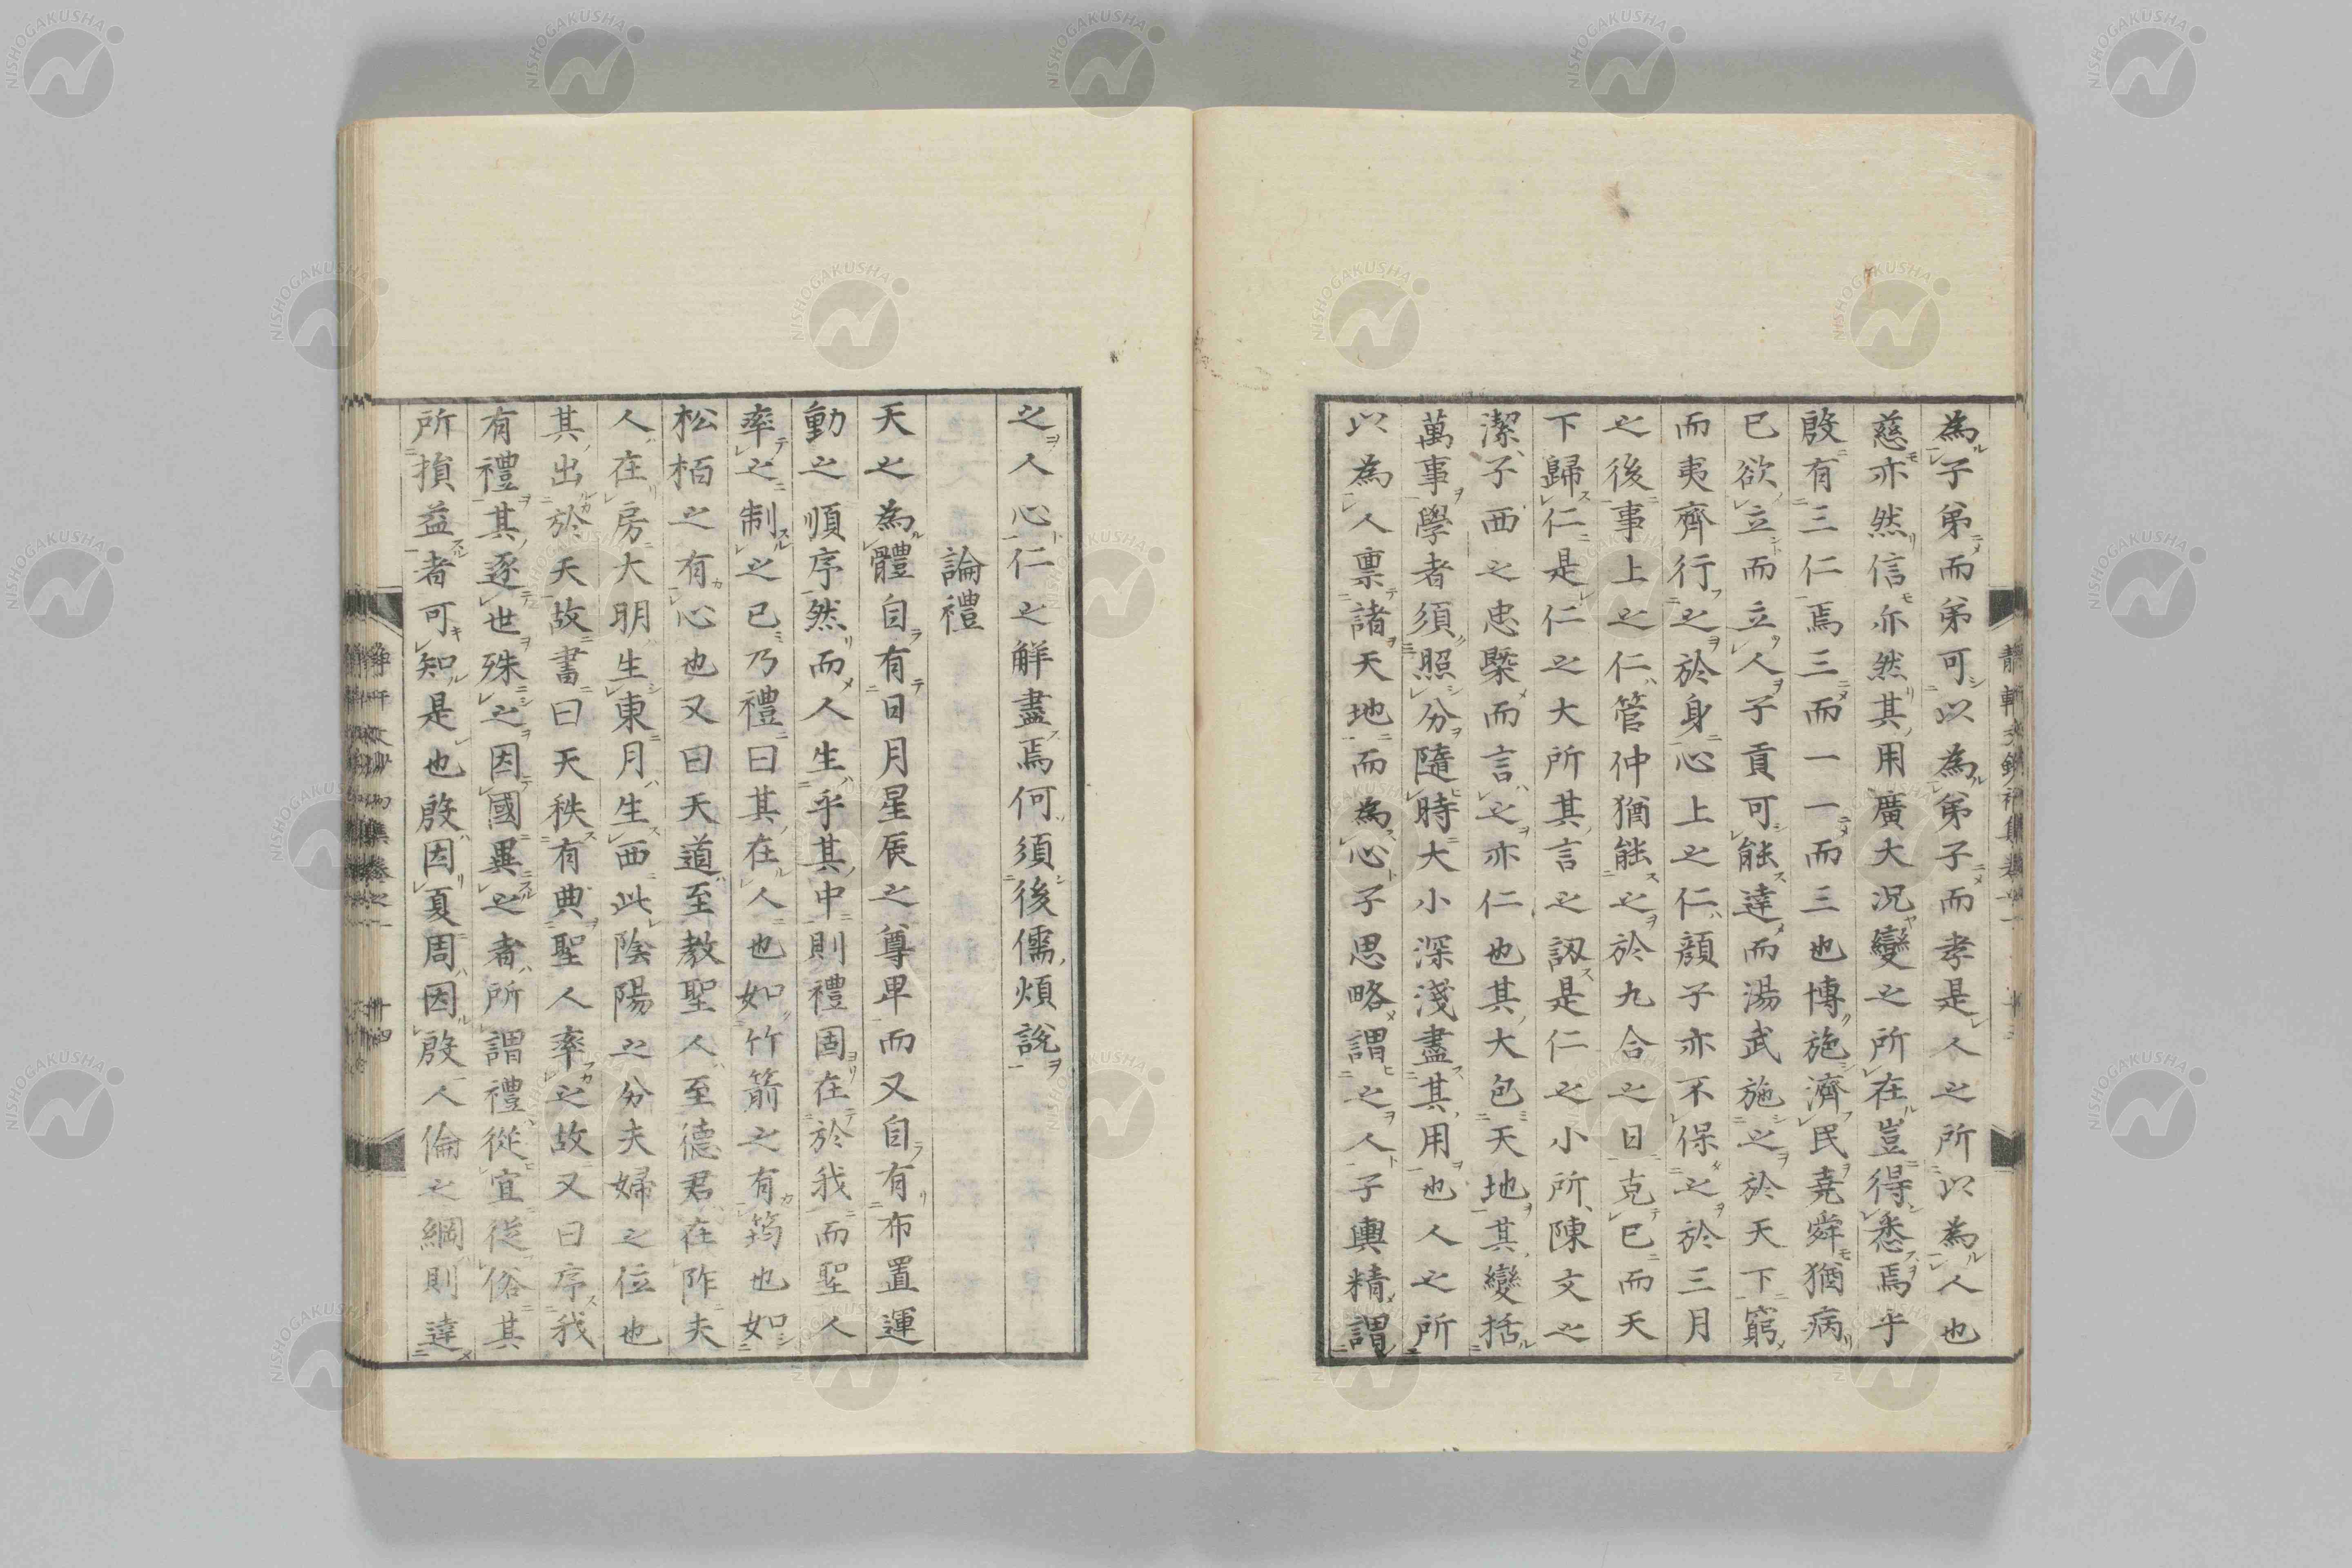 為子弟而弟可以為弟子而孝是人之所以為人也
慈亦然信亦然其用廣大況變之所在豈得悉焉乎
殷有三仁焉三而一一而三也博施濟民堯舜猶病
已欲立而立人子貢可能達而湯武施之於天下窮
而夷齊行之於身心上之仁顏子亦不保之於三月
之後事上之仁管仲猶能之於九合之日克已而天
下歸仁是仁之大所其言之訒是仁之小所陳文之
潔子西之忠槩而言之亦仁也其大包天地其變括
萬事學者須照分隨時大小深淺盡其用也人之所
以為人稟諸天地而為心子思略謂之人子輿精謂
之人心仁之解盡焉何須後儒煩說
論禮
天之為體自有日月星辰之尊卑而又自有布置運
動之順序然而人生乎其中則禮固在於我而聖人
率之制之已乃禮曰其在人也如竹箭之有筠也如
松栢之有心也又曰天道至教聖人至德君在阼夫
人在房大明生東月生西此陰陽之分夫婦之位也
其出於天故書曰天秩有典聖人率之故又曰序我
有禮其逐世殊之因國異之者所謂禮從宜從俗其
所損益者可知是也殷因夏周因殷人倫之綱則達
NISHOGAKUSHA